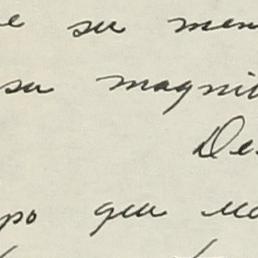 e su men
su magni
De
po que